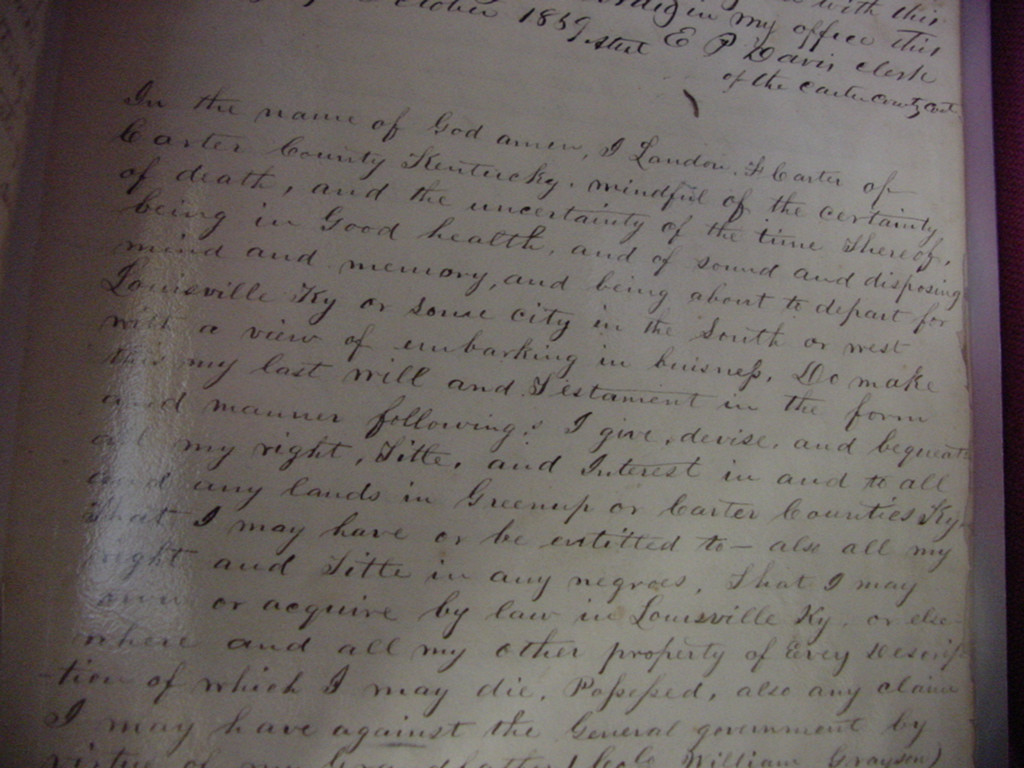 with this
October 1859. in my office this
Att E P Davis, clerk
of the carter county court
In the name of God amen, I Landon Carter of
Carter County Kentucky, mindful of the certainty
of death, and the uncertainty of the time thereof,
being in Good health, and of sound and disposing
mind and memory, and being about to depart for
Louisville Ky or some city in the South or west
with a view of embarking in buisness, Do make
this my last will and Testament in the form
and manner following: I give, devise, and bequeath
all my right, Title, and Interest in and to all
and any lands in Greenup or Carter Counties Ky
that I may have or be intitled to – also all my
right and Title in any negroes, that I may
own or acquire by law in Louisville Ky, or else-
where and all my other property of Every
-tion of which I may die, Possessed, also any claim
I may have against the General government by
virtue of my Grand father (Col William Grayson)